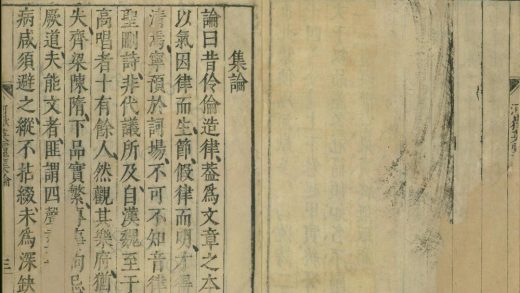 集論
論曰昔伶倫造律葢爲文章之本
以氣因律而生節假律而明才得
清焉寧預於詞場不可不知音律
聖刪詩非代議所及自漢魏至于
高唱者十有餘人然觀其樂府猶
失齊梁陳隋下品實繁專事拘忌
厥道夫能文者匪謂四聲
病咸須避之縱不拈綴未爲深缺
河嶽英靈集論
三